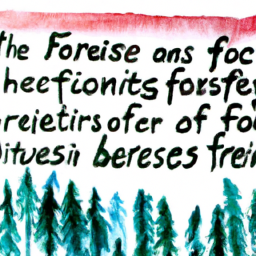 the Foreise ans foc
heefionits forsfer
reietirs ofer of fo
ituesii bereses frein